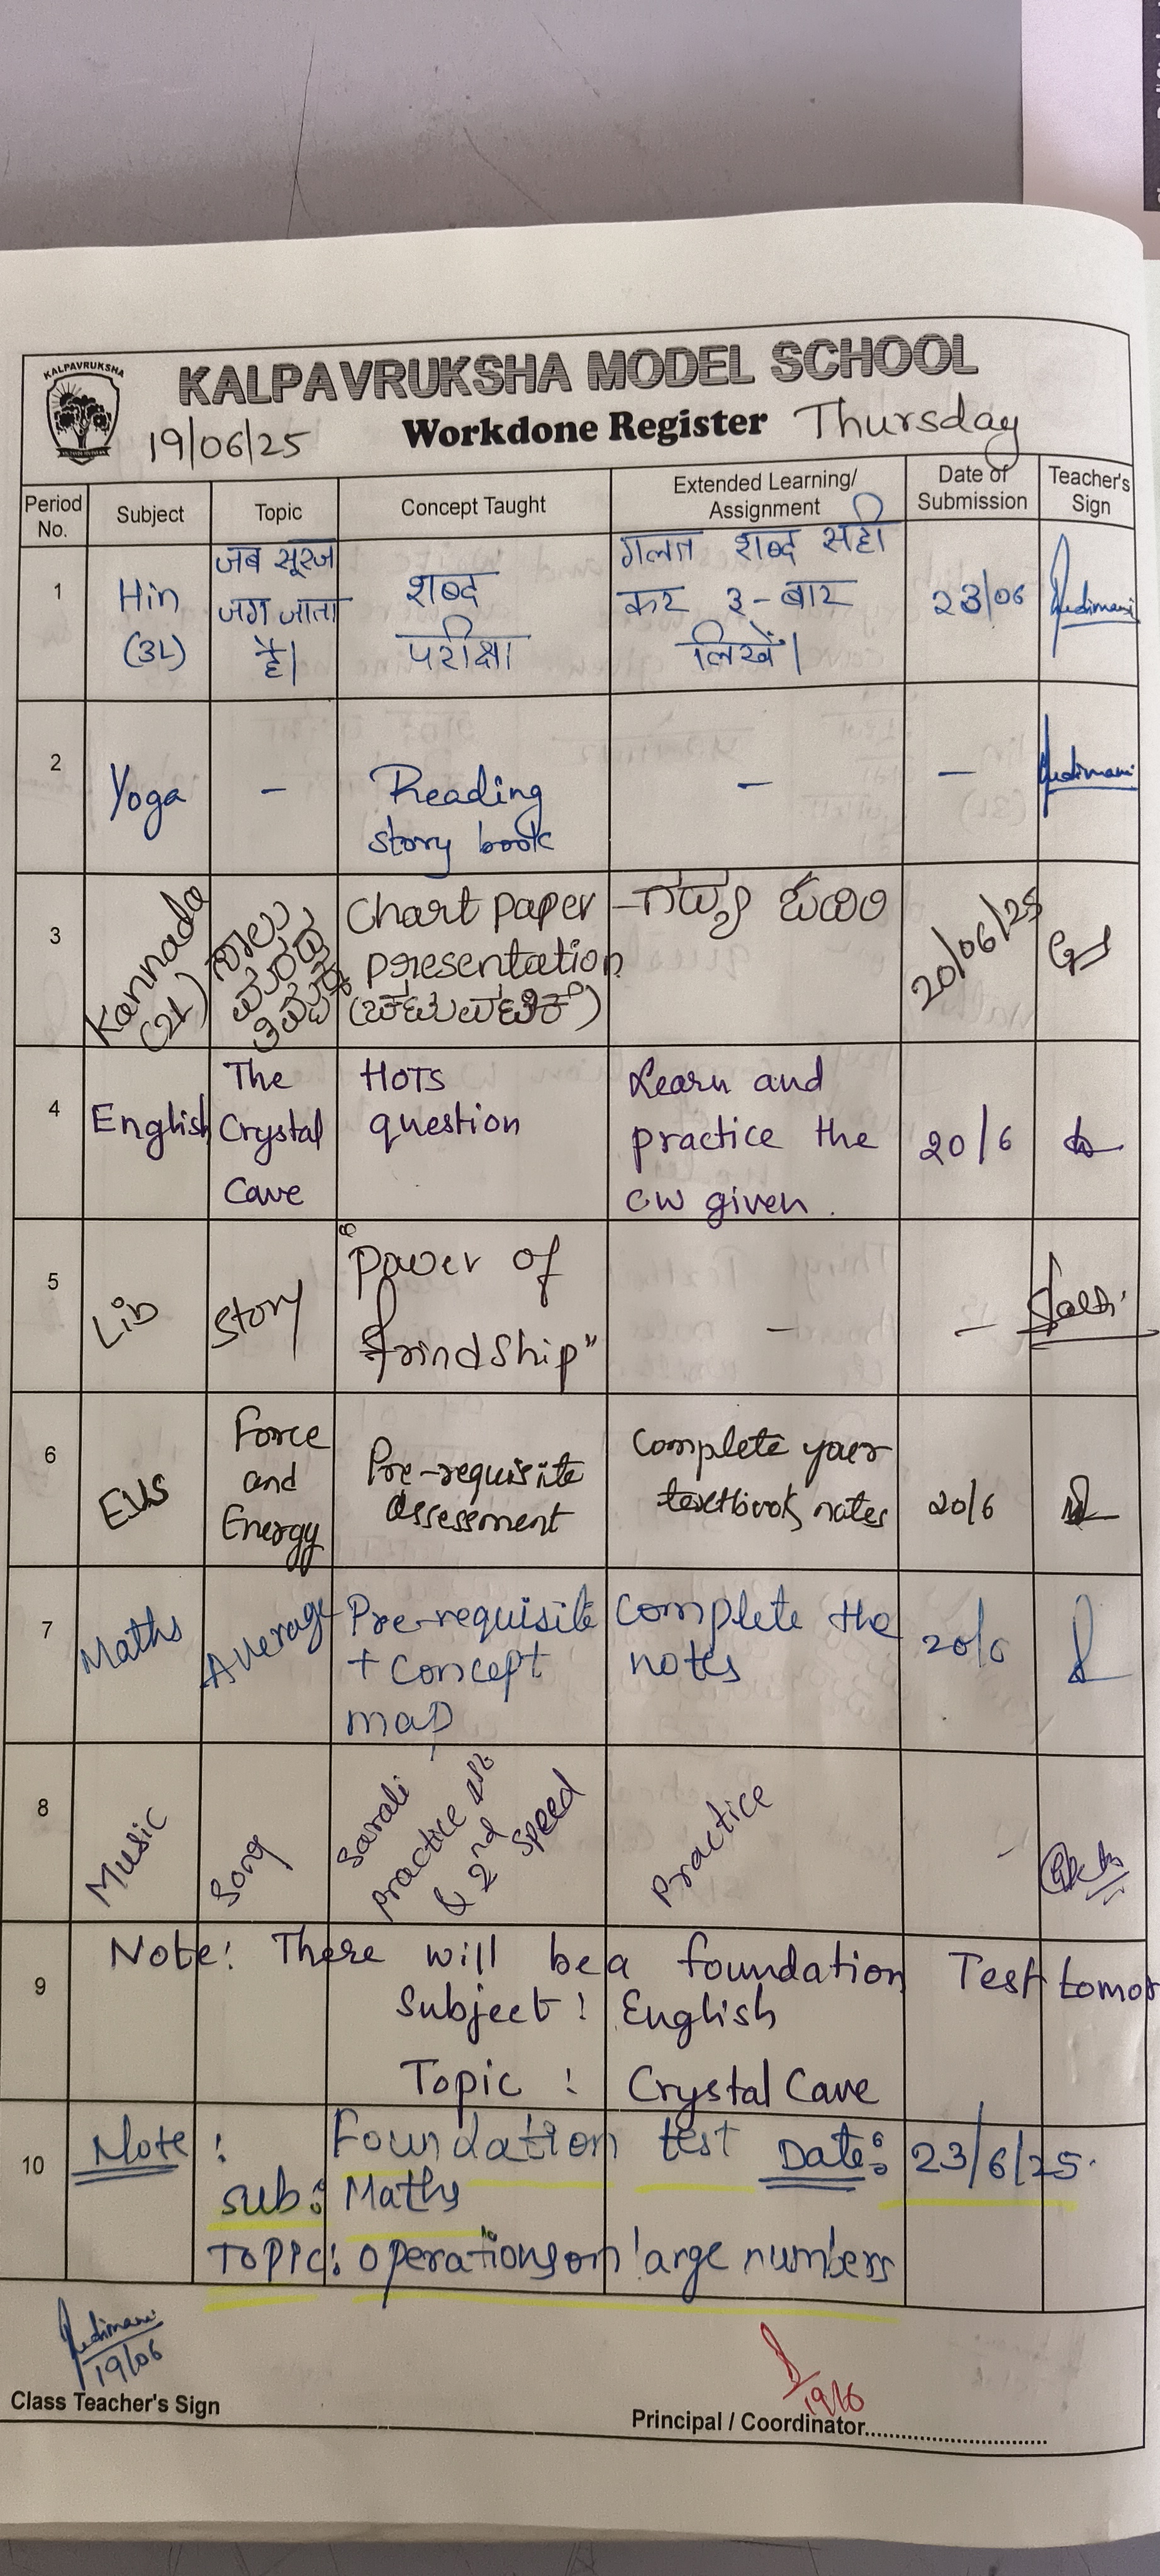 KALPAVRUKSHA
KALPAVRUKSHA MODEL SCHOOL
19/06/25 Workdone Register Thursday
Period No. Subject Topic Concept Taught Extended Learning/ Assignment Date of Submission Teacher's Sign
1 Hin (3L) जब सूरज जग जाता है। शब्द परीक्षा गलत शब्द सही कर ३-बार लिखें। 23/06
2 Yoga - Reading story book - -
3 Kannada (2L) ಸಾಲು ಮರದ ತಿಮ್ಮಕ್ಕ Chart paper presentation - ಗದ್ಯ ಓದಿರಿ 20/06/25
4 English The Crystal Cave HOTS question Learn and practice the CW given. 20/6
5 Lib Story "Power of frindship" - -
6 EVS Force and Energy Pre-requisite assessment Complete your textbook notes 20/6
7 Maths Average Pre-requisite + concept map Complete the notes 20/6
8 Music Song Sarali practice 1st & 2nd speed Practice -
9 Note: There will be a foundation Test tomor
Subject: English
Topic : Crystal Cave
10 Note: Foundation test Date: 23/6/25.
sub: Maths
Topic: operations on large numbers
19/06
19/6
Class Teacher's Sign
Principal / Coordinator